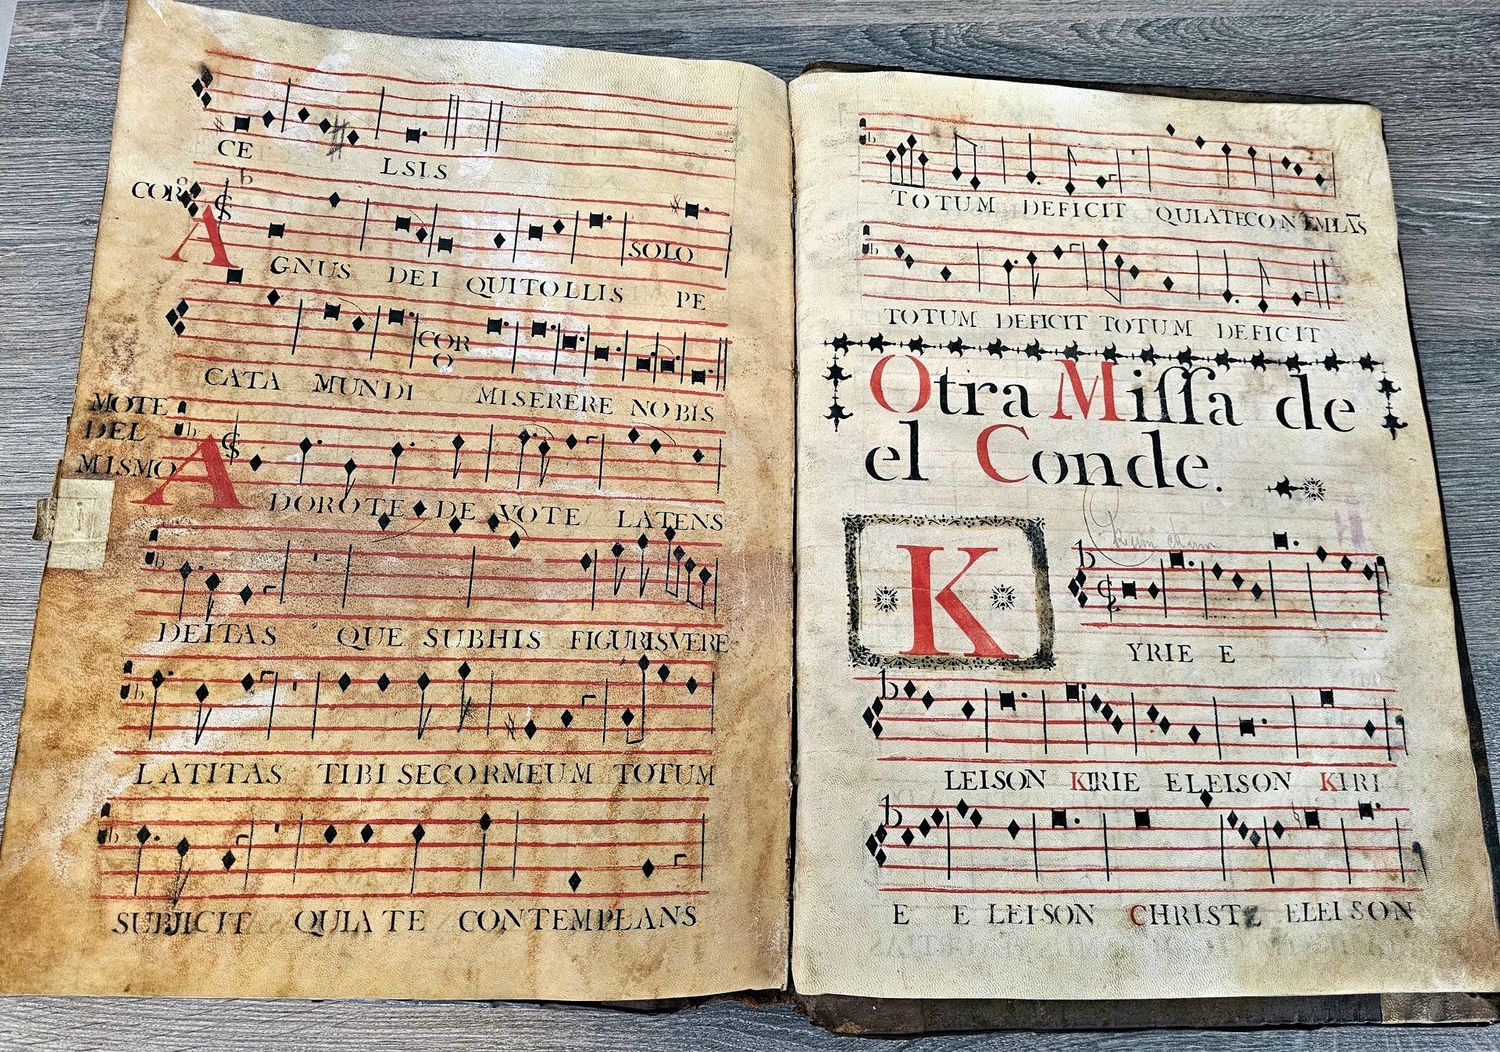 CE LSIS
CORO
AGNUS DEI QUITOLLIS SOLO PE
CATA MUNDI CORO MISERERE NOBIS
MOTE
DEL
MISMO
ADOROTE DE VOTE LATENS
DEITAS QUE SUBHIS FIGURISVERE
LATITAS TIBI SECORMEUM TOTUM
SUBJICIT QUIA TE CONTEMPLANS
TOTUM DEFICIT QUIATECONTEMPLĀS
TOTUM DEFICIT TOTUM DEFICIT
Otra Miſſa de
el Conde.
KYRIE E
LEISON KIRIE ELEISON KIRI
E E LEISON CHRISTE ELEISON